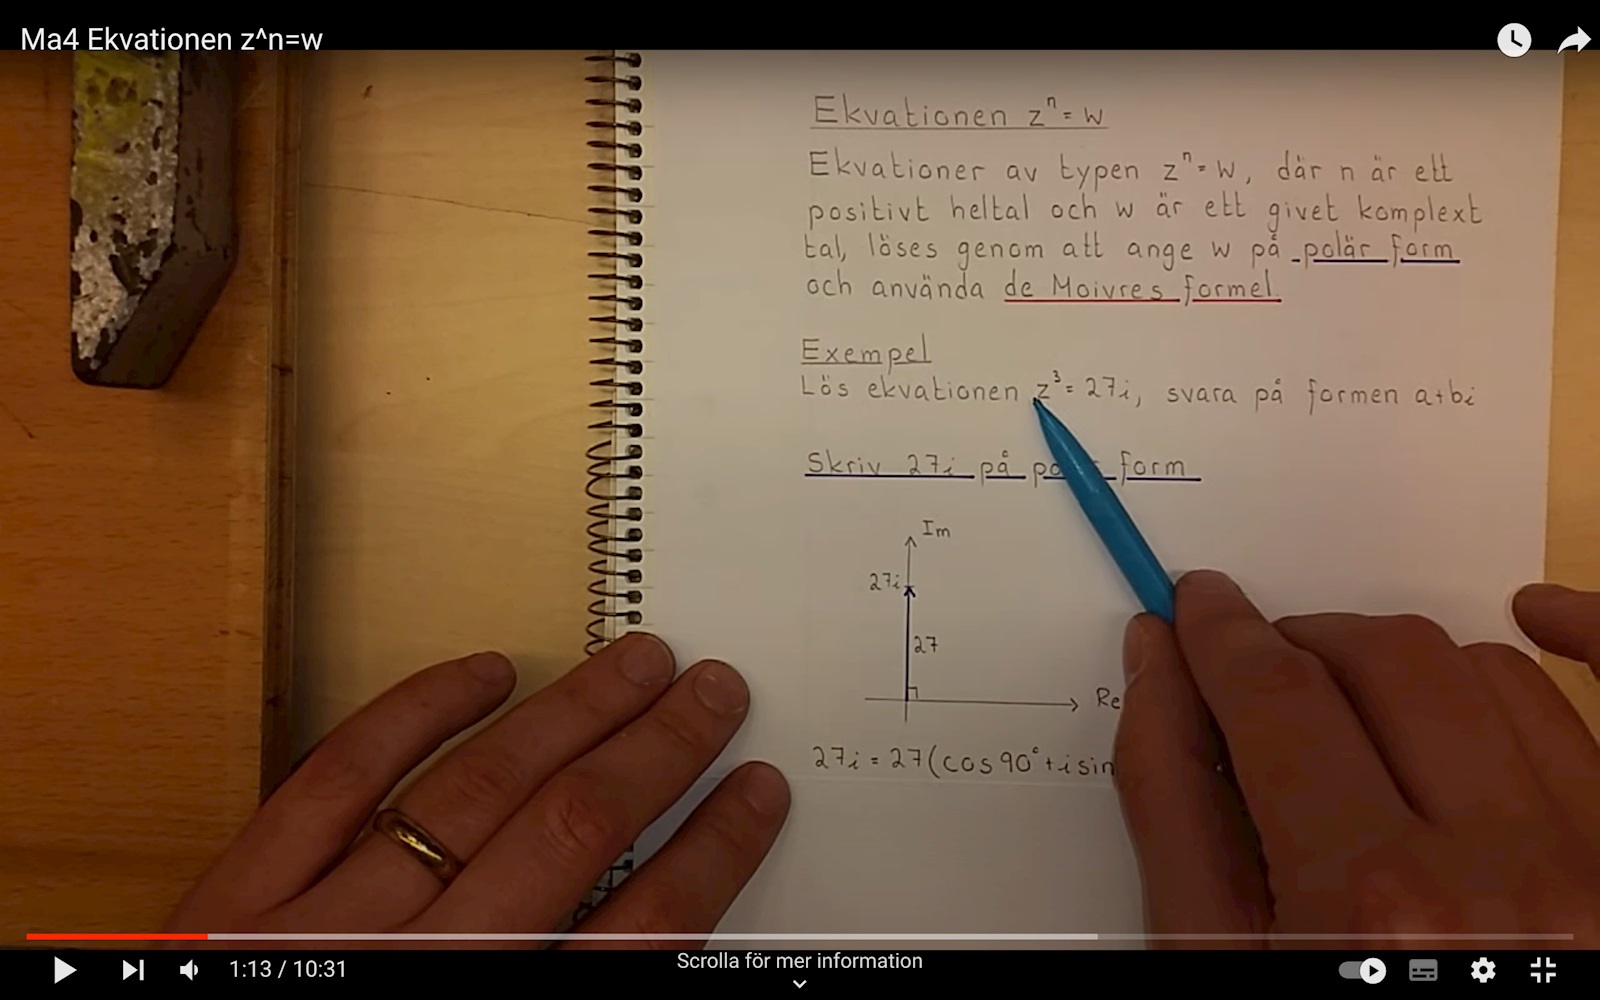 Ma4 Ekvationen z^n=w
Ekvationen zⁿ = w
Ekvationer av typen zⁿ = w, där n är ett
positivt heltal och w är ett givet komplext
tal, löses genom att ange w på polär form
och använda de Moivres formel.
Exempel
Lös ekvationen z³ = 27i, svara på formen a+bi
Skriv 27i på form
Im
27i
27
Re
27i = 27(cos 90° + i sin
1:13 / 10:31
Scrolla för mer information